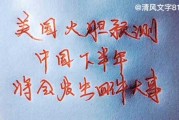 @清风文字81
美国火胆预测
中国下半年
将会发生四件大事